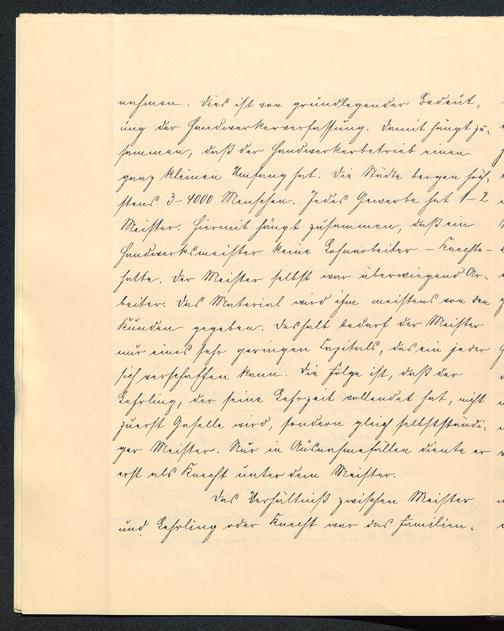 nahmen. Dies ist von grundlegender Bedeut-
ung der Handwerkerverfassung. Damit hängt zu-
sammen, daß der Handwerkerbetrieb einen
ganz kleinen Umfang hat. Die Städte bergen höch-
stens 3-4000 Menschen. Jedes Gewerbe hat 1-2
Meister. Hiermit hängt zusammen, daß ein
Handwerksmeister keine Lohnarbeiter - Knechte -
hatte. Der Meister selbst war überwiegend Ar-
beiter. Das Material wird ihm meistens von den
Kunden gegeben. Deshalb bedarf der Meister
nur eines sehr geringen Capitals, das ein jeder
sich verschaffen kann. Die Folge ist, daß der
Lehrling, der seine Lehrzeit vollendet hat, nicht
zuerst Geselle wird, sondern gleich selbstständi-
ger Meister. Nur in Ausnahmefällen diente er
erst als Knecht unter dem Meister.
Das Verhältniß zwischen Meister
und Lehrling oder Knecht war das Familien-